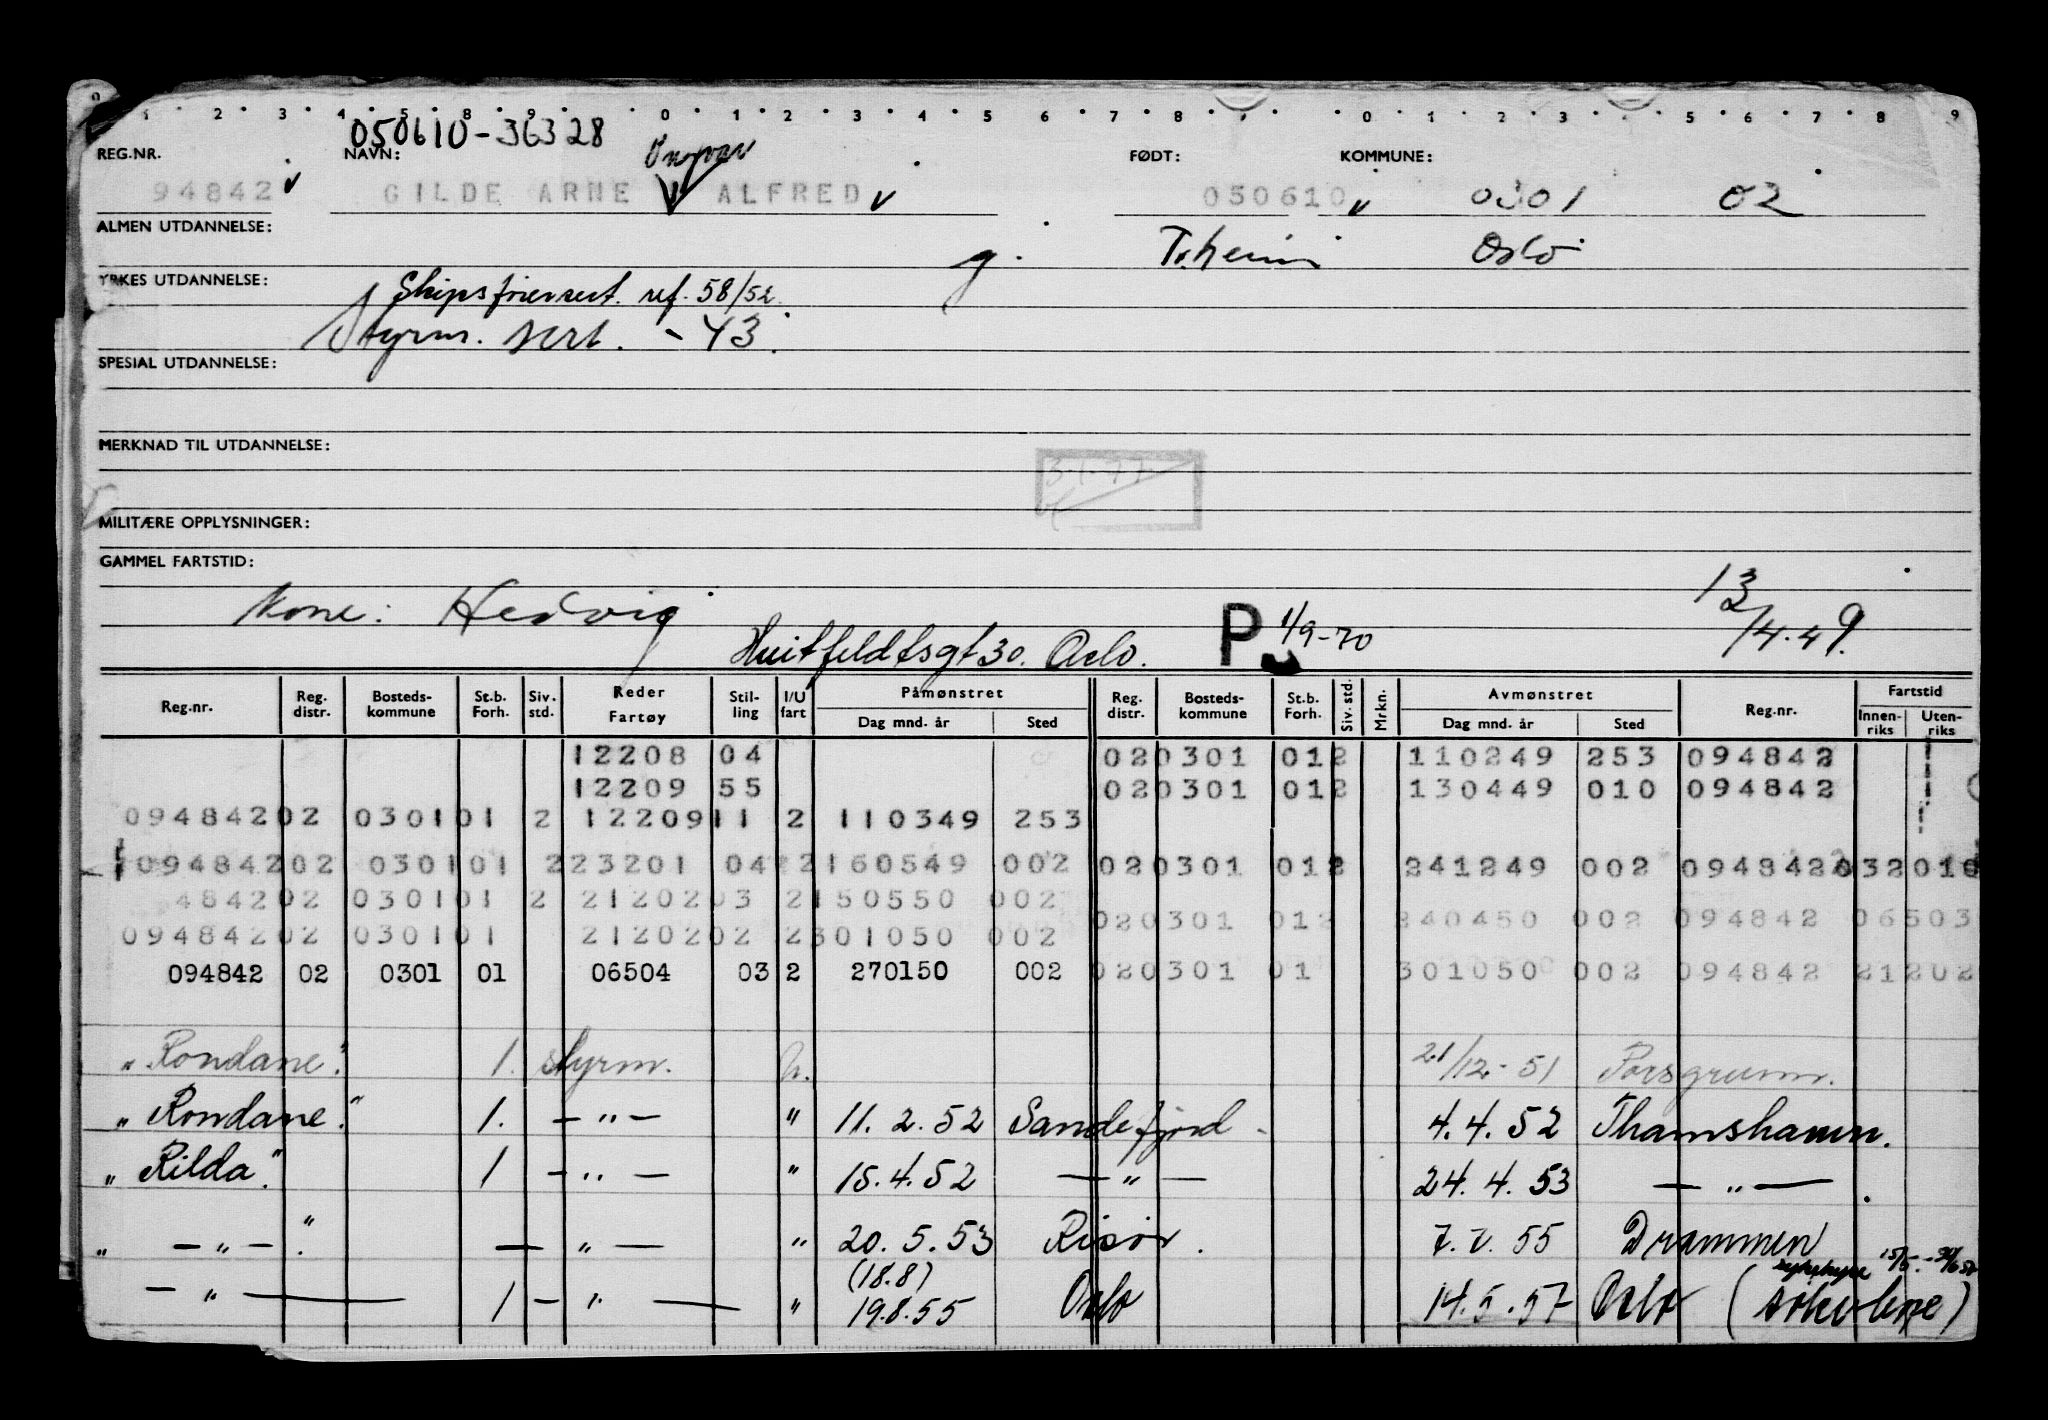 050610-36328
REG.NR. NAVN: Ingvar FØDT: KOMMUNE:
94842 GILDE ARNE ALFRED 050610 0301 02
ALMEN UTDANNELSE: g. Tr.heim Oslo
YRKES UTDANNELSE: Skipsførersert. ref. 58/52
Styrm. sert. - 43.
SPESIAL UTDANNELSE:
MERKNAD TIL UTDANNELSE:
3.1.77
MILITÆRE OPPLYSNINGER:
GAMMEL FARTSTID:
Kone: Hedvig 13/4.49.
Huitfeldtsgt 30. Oslo. P 1/9-70
Reg.nr. Reg. distr. Bosteds-kommune St.b. Forh. Siv. std. Reder Fartøy Stil-ling I/U fart Påmønstret Dag mnd. år Sted Reg. distr. Bosteds-kommune St.b. Forh. Siv. std. Mrkn. Avmønstret Dag mnd. år Sted Reg.nr. Fartstid Innen-riks Uten-riks
12208 04 020301 012 110249 253 094842
12209 55 020301 012 130449 010 094842
09484202 030101 2 1220911 2 110349 253
09484202 030101 223201 04 2160549 002 020301 012 241249 002 094842 032010
48420 2 030101 2 2120203 2150550 002
020301 012 240450 002 094842 06503
09484202 030101 2120202 2301050 002
094842 02 0301 01 06504 03 2 270150 002 020301 01 301050 002 094842 21202
"Rondane". 1. styrm. U. 21/12-51 Porsgrunn.
"Rondane". 1. — " — " 11.2.52 Sandefjord - 4.4.52 Thamshamn.
"Rilda". 1 — " — " 15.4.52 — " — 24.4.53 — " — .
" — " — ". — " — " 20.5.53 Risør. 7.7.55 Drammen
— " — 1 — " — " (18.8) 19.8.55 Oslo 14.5.57 Oslo